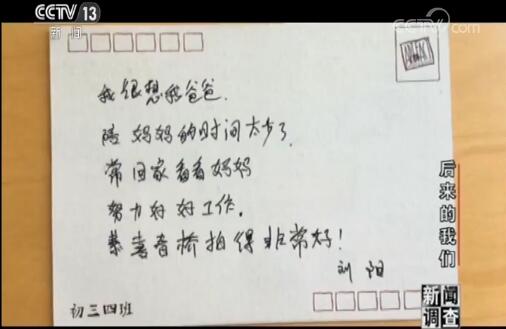 CCTV 13
新闻
CCTV.com
我很想我爸爸.
陪妈妈的时间太少了.
常回家看看妈妈
努力好好工作.
桥拍得非常好!
刘阳
初三四班
后来的我们
新闻
调查